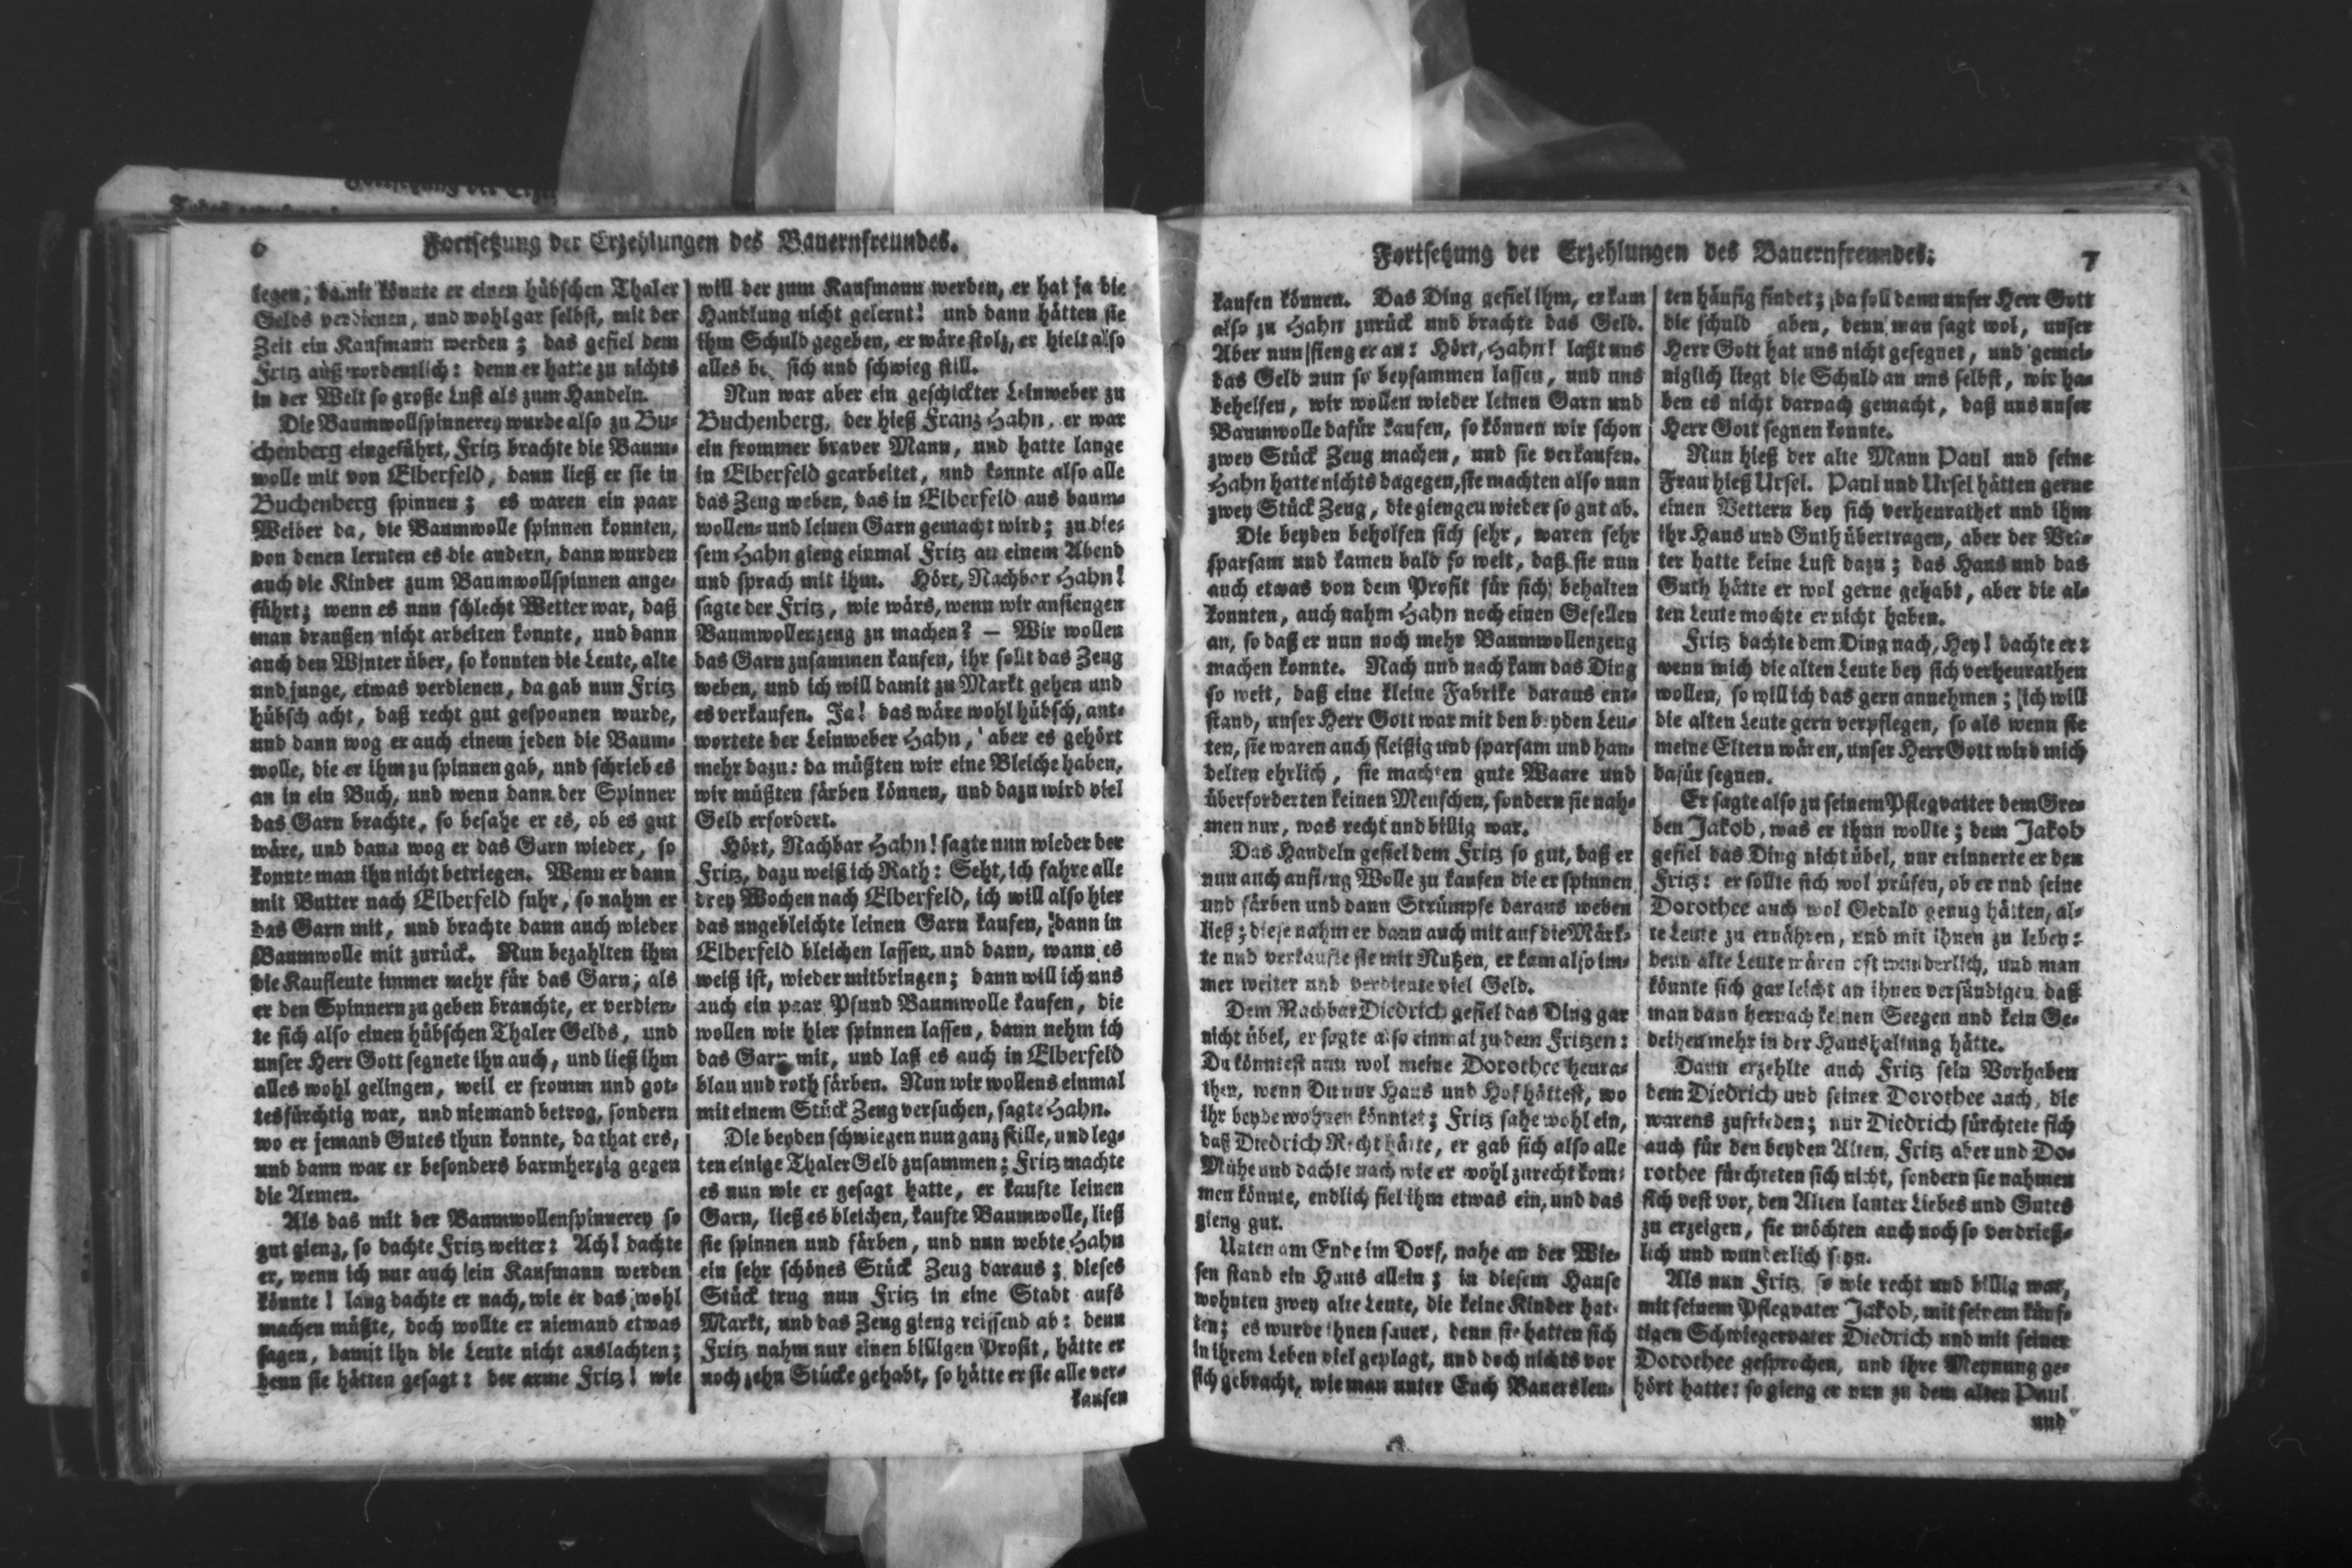 6
Fortsetzung der Erzehlungen des Bauernfreundes.
legen, damit könnte er einen hübschen Thaler
Gelds verdienen, und wohl gar selbst, mit der
Zeit ein Kaufmann werden; das gefiel dem
Fritz außerordentlich: denn er hatte zu nichts
in der Welt so große Lust als zum Handeln.
Die Baumwollspinnerey wurde also zu Bu-
chenberg eingeführt, Fritz brachte die Baum-
wolle mit von Elberfeld, dann ließ er sie in
Buchenberg spinnen; es waren ein paar
Weiber da, die Baumwolle spinnen konnten,
von denen lernten es die andern, dann wurden
auch die Kinder zum Baumwollspinnen ange-
führt; wenn es nun schlecht Wetter war, daß
man draußen nicht arbeiten konnte, und dann
auch den Winter über, so konnten die Leute, alte
und junge, etwas verdienen, da gab nun Fritz
hübsch acht, daß recht gut gesponnen wurde,
und dann wog er auch einem jeden die Baum-
wolle, die er ihm zu spinnen gab, und schrieb es
an in ein Buch, und wenn dann der Spinner
das Garn brachte, so besahe er es, ob es gut
wäre, und dann wog er das Garn wieder, so
konnte man ihn nicht betriegen. Wenn er dann
mit Butter nach Elberfeld fuhr, so nahm er
das Garn mit, und brachte dann auch wieder
Baumwolle mit zurück. Nun bezahlten ihm
die Kaufleute immer mehr für das Garn, als
er den Spinnern zu geben brauchte, er verdien-
te sich also einen hübschen Thaler Gelds, und
unser Herr Gott segnete ihn auch, und ließ ihm
alles wohl gelingen, weil er fromm und got-
tesfürchtig war, und niemand betrog, sondern
wo er jemand Gutes thun konnte, da that ers,
und dann war er besonders barmherzig gegen
die Armen.
Als das mit der Baumwollenspinnerey so
gut gieng, so dachte Fritz weiter: Ach! dachte
er, wenn ich nur auch ein Kaufmann werden
könnte! lang dachte er nach, wie er das wohl
machen müßte, doch wollte er niemand etwas
sagen, damit ihn die Leute nicht auslachten;
denn sie hätten gesagt: der arme Fritz! wie
will der zum Kaufmann werden, er hat ja die
Handlung nicht gelernt! und dann hätten sie
ihm Schuld gegeben, er wäre stolz, er hielt also
alles be sich und schwieg still.
Nun war aber ein geschickter Leinweber zu
Buchenberg, der hieß Franz Hahn, er war
ein frommer braver Mann, und hatte lange
in Elberfeld gearbeitet, und konnte also alle
das Zeug weben, das in Elberfeld aus baum-
wollen- und leinen Garn gemacht wird; zu die-
sem Hahn gieng einmal Fritz an einem Abend
und sprach mit ihm. Hört, Nachbar Hahn!
sagte der Fritz, wie wärs, wenn wir anfiengen
Baumwollenzeug zu machen? — Wir wollen
das Garn zusammen kaufen, ihr sollt das Zeug
weben, und ich will damit zu Markt gehen und
es verkaufen. Ja! das wäre wohl hübsch, ant-
wortete der Leinweber Hahn, aber es gehört
mehr dazu: da müßten wir eine Bleiche haben,
wir müßten färben können, und dazu wird viel
Geld erfordert.
Hört, Nachbar Hahn! sagte nun wieder der
Fritz, dazu weiß ich Rath: Seht, ich fahre alle
drey Wochen nach Elberfeld, ich will also hier
das ungebleichte leinen Garn kaufen, dann in
Elberfeld bleichen lassen, und dann, wann es
weiß ist, wieder mitbringen; dann will ich uns
auch ein paar Pfund Baumwolle kaufen, die
wollen wir hier spinnen lassen, dann nehm ich
das Garn mit, und laß es auch in Elberfeld
blau und roth färben. Nun wir wollens einmal
mit einem Stück Zeug versuchen, sagte Hahn.
Die beyden schwiegen nun ganz stille, und leg-
ten einige Thaler Geld zusammen; Fritz machte
es nun wie er gesagt hatte, er kaufte leinen
Garn, ließ es bleichen, kaufte Baumwolle, ließ
sie spinnen und färben, und nun webte Hahn
ein sehr schönes Stück Zeug daraus; dieses
Stück trug nun Fritz in eine Stadt aufs
Markt, und das Zeug gieng reissend ab: denn
Fritz nahm nur einen billigen Profit, hätte er
noch zehn Stücke gehabt, so hätte er sie alle ver-
kaufen
Fortsetzung der Erzehlungen des Bauernfreundes.
7
kaufen können. Das Ding gefiel ihm, er kam
also zu Hahn zurück und brachte das Geld.
Aber nun fieng er an: Hört, Hahn! laßt uns
das Geld nun so beysammen lassen, und uns
behelfen, wir wollen wieder leinen Garn und
Baumwolle dafür kaufen, so können wir schon
zwey Stück Zeug machen, und sie verkaufen.
Hahn hatte nichts dagegen, sie machten also nun
zwey Stück Zeug, die giengen wieder so gut ab.
Die beyden beholfen sich sehr, waren sehr
sparsam und kamen bald so weit, daß sie nun
auch etwas von dem Profit für sich behalten
konnten, auch nahm Hahn noch einen Gesellen
an, so daß er nun noch mehr Baumwollenzeug
machen konnte. Nach und nach kam das Ding
so weit, daß eine kleine Fabrike daraus ent-
stand, unser Herr Gott war mit den beyden Leu-
ten, sie waren auch fleißig und sparsam und han-
delten ehrlich, sie machten gute Waare und
überforderten keinen Menschen, sondern sie nah-
men nur, was recht und billig war.
Das Handeln gefiel dem Fritz so gut, daß er
nun auch anfieng Wolle zu kaufen die er spinnen
und färben und dann Strümpfe daraus weben
ließ; diese nahm er dann auch mit auf die Märk-
te und verkaufte sie mit Nutzen, er kam also im-
mer weiter und verdiente viel Geld.
Dem Nachbar Diedrich gefiel das Ding gar
nicht übel, er sagte also einmal zu dem Fritzen:
Du könntest nun wol meine Dorothee heura-
then, wenn Du nur Haus und Hof hättest, wo
ihr beyde wohnen könntet; Fritz sahe wohl ein,
daß Diedrich Recht hätte, er gab sich also alle
Mühe und dachte nach wie er wohl zurecht kom-
men könnte, endlich fiel ihm etwas ein, und das
gieng gut.
Unten am Ende im Dorf, nahe an der Wie-
sen stand ein Haus allein; in diesem Hause
wohnten zwey alte Leute, die keine Kinder hat-
ten; es wurde ihnen sauer, denn sie hatten sich
in ihrem Leben viel geplagt, und doch nichts vor
sich gebracht, wie man unter Euch Bauersleu-
ten häufig findet; da soll dann unser Herr Gott
die schuld aben, denn man sagt wol, unser
Herr Gott hat uns nicht gesegnet, und gemei-
niglich liegt die Schuld an uns selbst, wir ha-
ben es nicht darnach gemacht, daß uns unser
Herr Gott segnen konnte.
Nun hieß der alte Mann Paul und seine
Frau hieß Ursel. Paul und Ursel hätten gerne
einen Vettern bey sich verheurathet und ihm
ihr Haus und Guth übertragen, aber der Vet-
ter hatte keine Lust dazu; das Haus und das
Guth hätte er wol gerne gehabt, aber die al-
ten Leute mochte er nicht haben.
Fritz dachte dem Ding nach, Hey! dachte er:
wenn mich die alten Leute bey sich verheurathen
wollen, so will ich das gern annehmen; ich will
die alten Leute gern verpflegen, so als wenn sie
meine Eltern wären, unser Herr Gott wird mich
dafür segnen.
Er sagte also zu seinem Pflegvatter dem Gre-
ben Jakob, was er thun wollte; dem Jakob
gefiel das Ding nicht übel, nur erinnerte er den
Fritz: er sollte sich wol prüfen, ob er und seine
Dorothee auch wol Geduld genug hätten, al-
te Leute zu ernähren, und mit ihnen zu leben:
denn alte Leute wären oft wunderlich, und man
könnte sich gar leicht an ihnen versündigen, daß
man dann hernach keinen Seegen und kein Ge-
deihen mehr in der Haushaltung hätte.
Dann erzehlte auch Fritz sein Vorhaben
dem Diedrich und seiner Dorothee auch, die
warens zufrieden; nur Diedrich fürchtete sich
auch für den beyden Alten, Fritz aber und Do-
rothee fürchteten sich nicht, sondern sie nahmen
sich vest vor, den Alten lauter Liebes und Gutes
zu erzeigen, sie möchten auch noch so verdrieß-
lich und wunderlich seyn.
Als nun Fritz, so wie recht und billig war,
mit seinem Pflegvater Jakob, mit seinem künf-
tigen Schwiegervater Diedrich und mit seiner
Dorothee gesprochen, und ihre Meynung ge-
hört hatte: so gieng er nun zu dem alten Paul
und